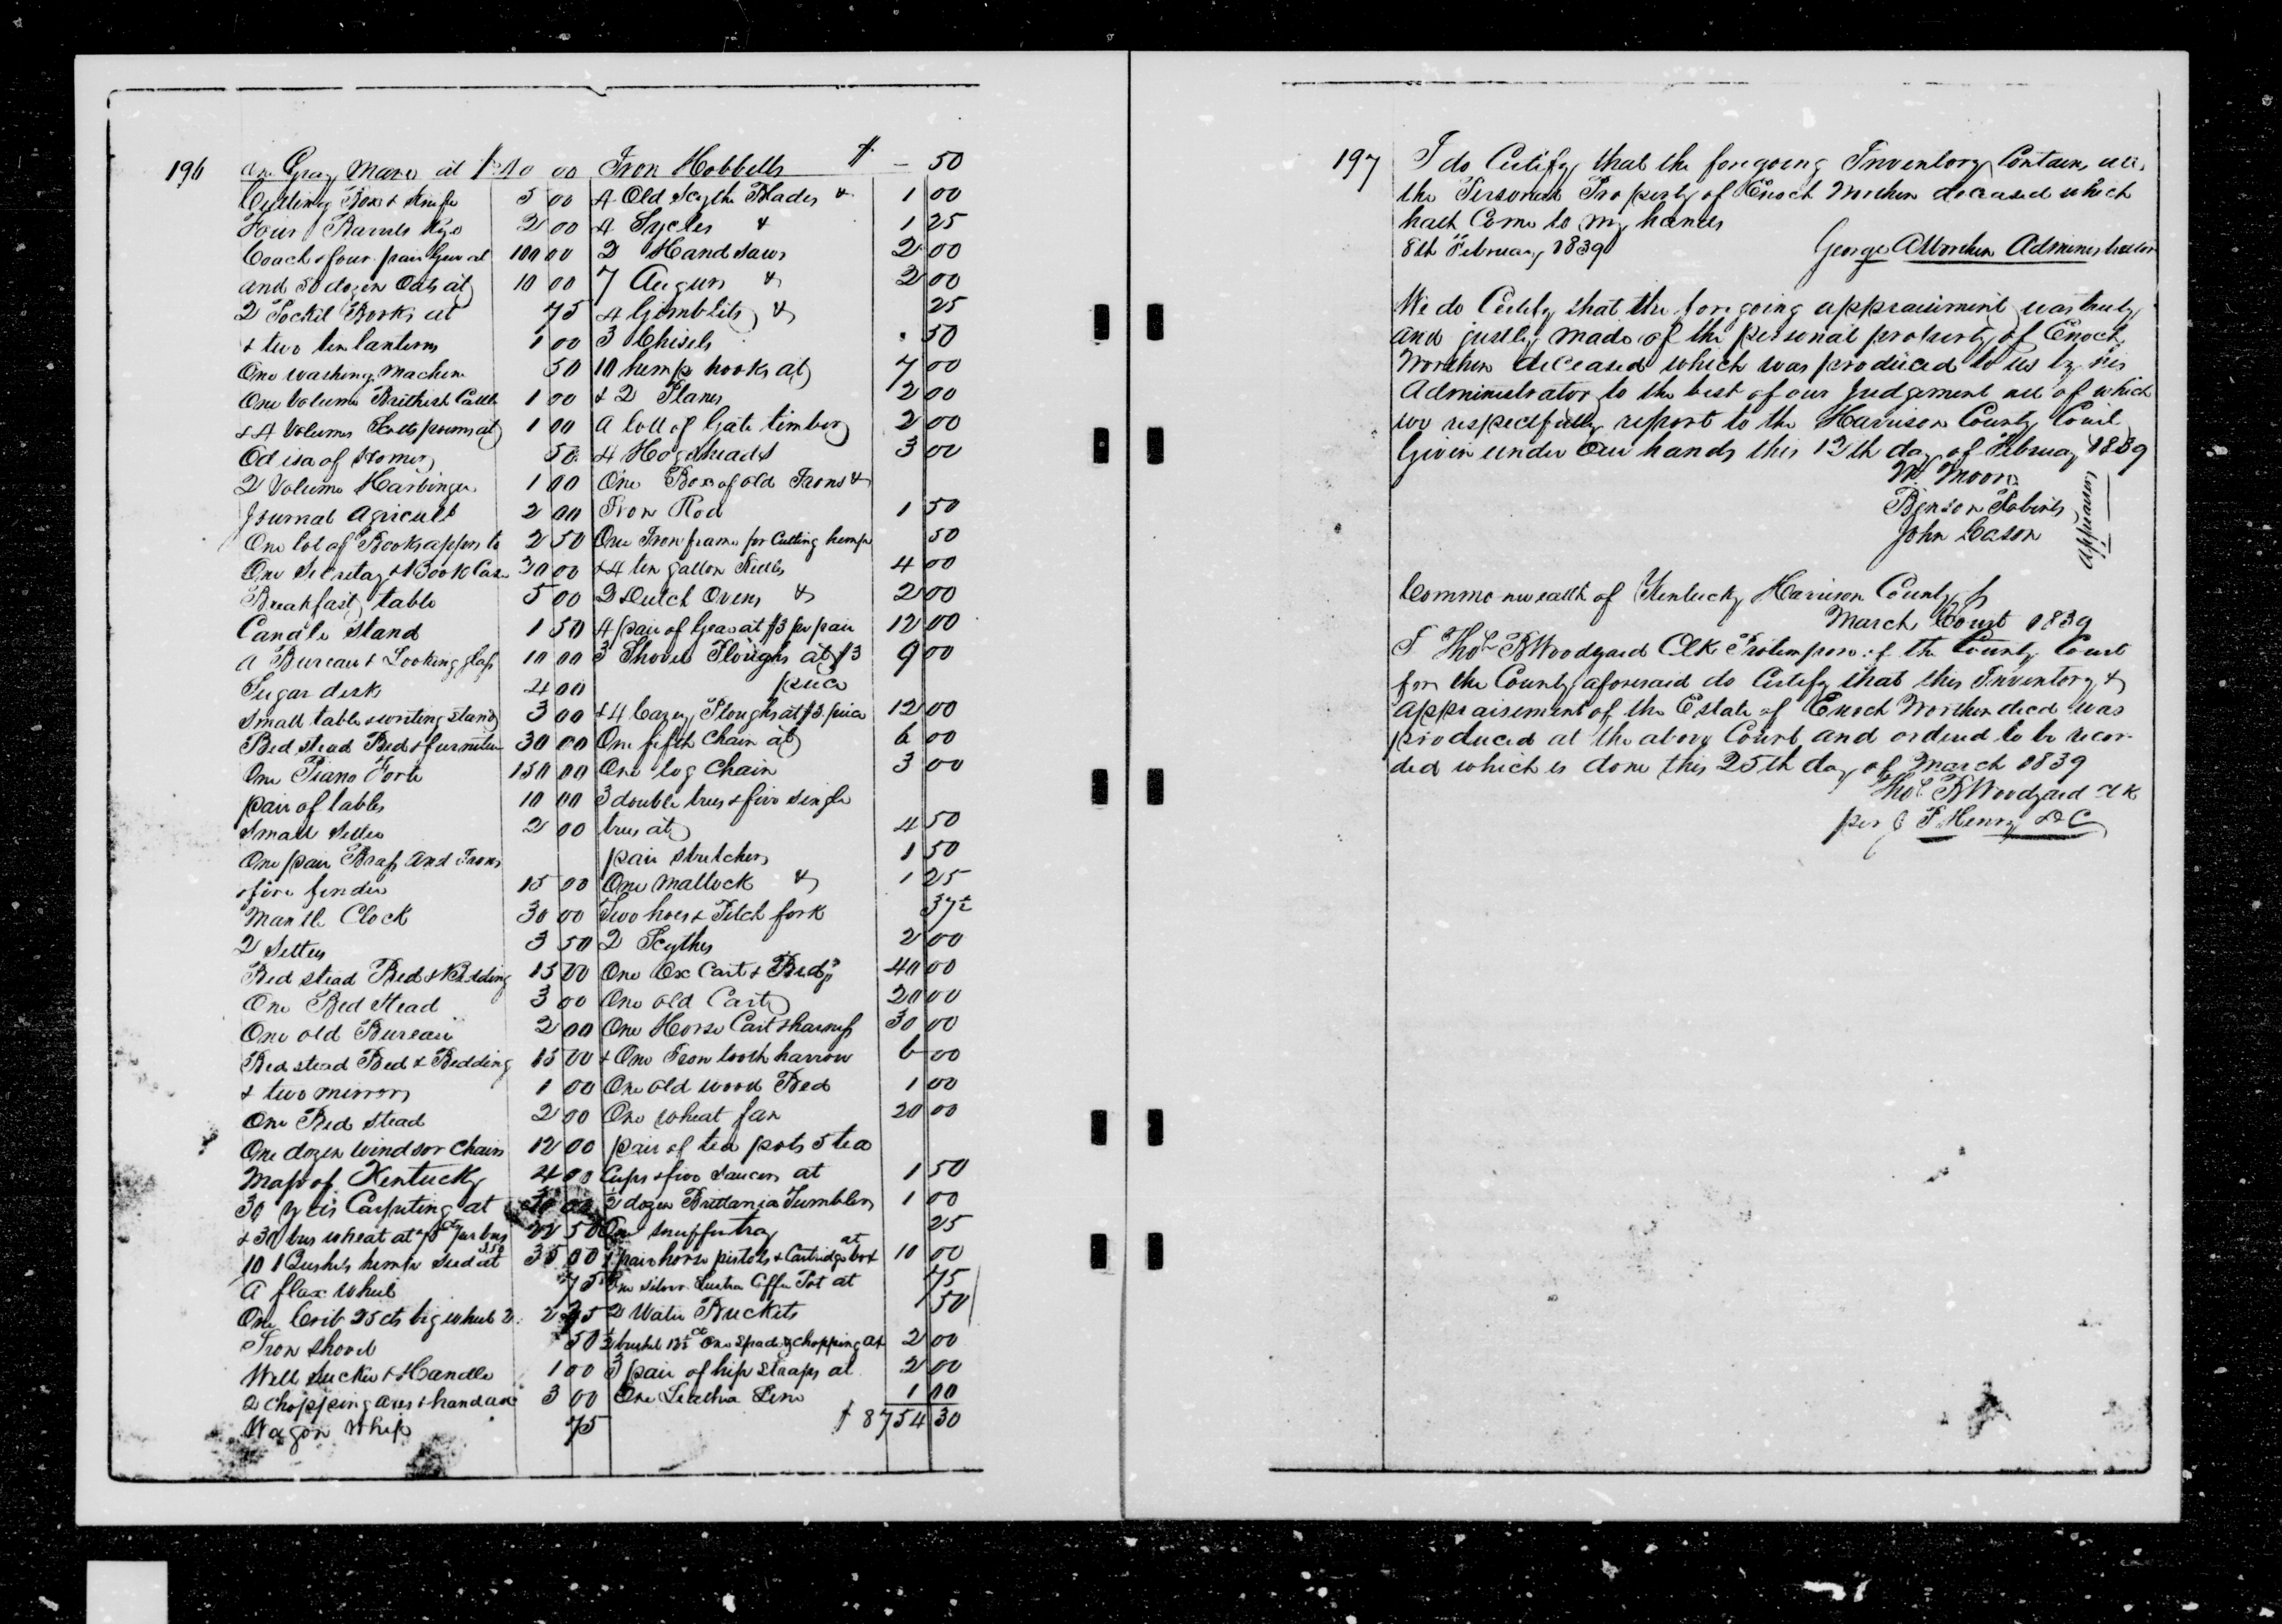 196
One Gray Mare at $40 00
Cutting Box & Knife 5 00
Four Barrels Rye 2 00
Coach & four pair Gear at 100 00
and 50 dozen Oats at 10 00
2 Pocket Books at 75
& two tin lanterns 1 00
One washing Machine 50
One Volume Brittish Cattle 1 00
& 4 Volumes Scotts poems at 1 00
Od isa of Homer 50
2 Volume Harbinger 1 00
Journal Agricult 2 00
One lot of Books appers to 2 50
One Secretay & Book Case 30 00
Breakfast table 5 00
Candle Stand 1 50
a Bureau & Looking glass 10 00
Sugar desk 4 00
Small table & writing stand 3 00
Bed stead Bed & furniture 30 00
One Piano Forte 150 00
pair of tables 10 00
Small Settee 2 00
One pair Brass And Irons
& fire fender 15 00
Mantle Clock 30 00
2 Settees 3 50
Bed stead Bed & Bedding 15 00
One Bed Stead 3 00
One old Bureau 2 00
Bed stead Bed & Bedding 15 00
& two mirrors 1 00
One Bed Stead 2 00
One dozen windsor Chairs 12 00
Map of Kentucky 4 00
30 yds Carpeting at
& 30 bus wheat at 75 cts per bus 22 50
10 Bushels hemp seed at 3.50 35 00
A flax Wheel 75
One Crib 25 cts big wheel 2. 2 25
Iron Shovel 50
Well Sucker & Handle 1 00
2 Chopping axes & hand axe 3 00
Wagon Whip 75
Iron Hobbells $ – 50
4 Old Scythe Blades & 1 00
4 Sycles & 1 25
2 Hand saws 2 00
7 Augurs & 2 00
4 Gimblits & 25
3 Chisels 50
10 hemp hooks at 7 00
& 2 Planes 2 00
a lott of Gate timber 2 00
4 Hogsheads 3 00
One Box of old Irons &
Iron Rod 1 50
One Iron frame for Cutting hemp 50
& 4 ten gallon Kettles 4 00
2 Dutch Ovens & 2 00
4 pair of Gear at $3 pr pair 12 00
3 Shovel Ploughs at $3 9 00
piece
& 4 Cazey Ploughs at $3 piece 12 00
One fifth Chain at 6 00
One log Chain 3 00
3 double trees & five single
trees at 4 50
pair stretchers 1 50
One mattock & 1 25
Two hoes & Pitch fork 37½
2 Scythes 2 00
One Ox Cart & Bed 40 00
One old Cart 20 00
One Horse Cart & harness 30 00
& One Iron tooth harrow 6 00
One old wood Bed 1 00
One wheat fan 20 00
pair of tea pots 5 tea
Cups & five Saucers at 1 50
½ dozen Brittania Tumblers 1 00
One snuffer tray 25
1 pair horse pistols & Cartridge box at 10 00
One silver Lustre Coffee Pot at 75
2 Water Buckets 50
½ bushel 12½ ct One Spade & chopping ax 2 00
3 pair of hip straps at 2 00
One Leather Line 1 00
$ 8754 30
197
I do Certify that the foregoing Inventory Contains all
the Personal Property of Enoch Worthen deceased which
hath Come to my hands
8th February 1839
George A Worthen Administrator
We do Certify that the foregoing appraisiment was truly
and justly made of the personal property of Enoch
Worthen deceased which was produced to us by his
Administrator to the best of our Judgement all of which
we respectfully report to the Harrison County Court
Given under Our hands this 13th day of Februay 1839
W. Moore
Benson Roberts
John Cason
Appraisers
Commonwealth of Kentucky Harrison County Sc
March Court 1839
I Thos B Woodyard Clk Protempore of the County Court
for the County aforesaid do Certify that this Inventory &
Appraisement of the Estate of Enoch Worthen decd was
produced at the above Court and orderd to be recor-
ded which is done this 25th day of March 1839
Thos B Woodyard Clk
per J F Henry D C